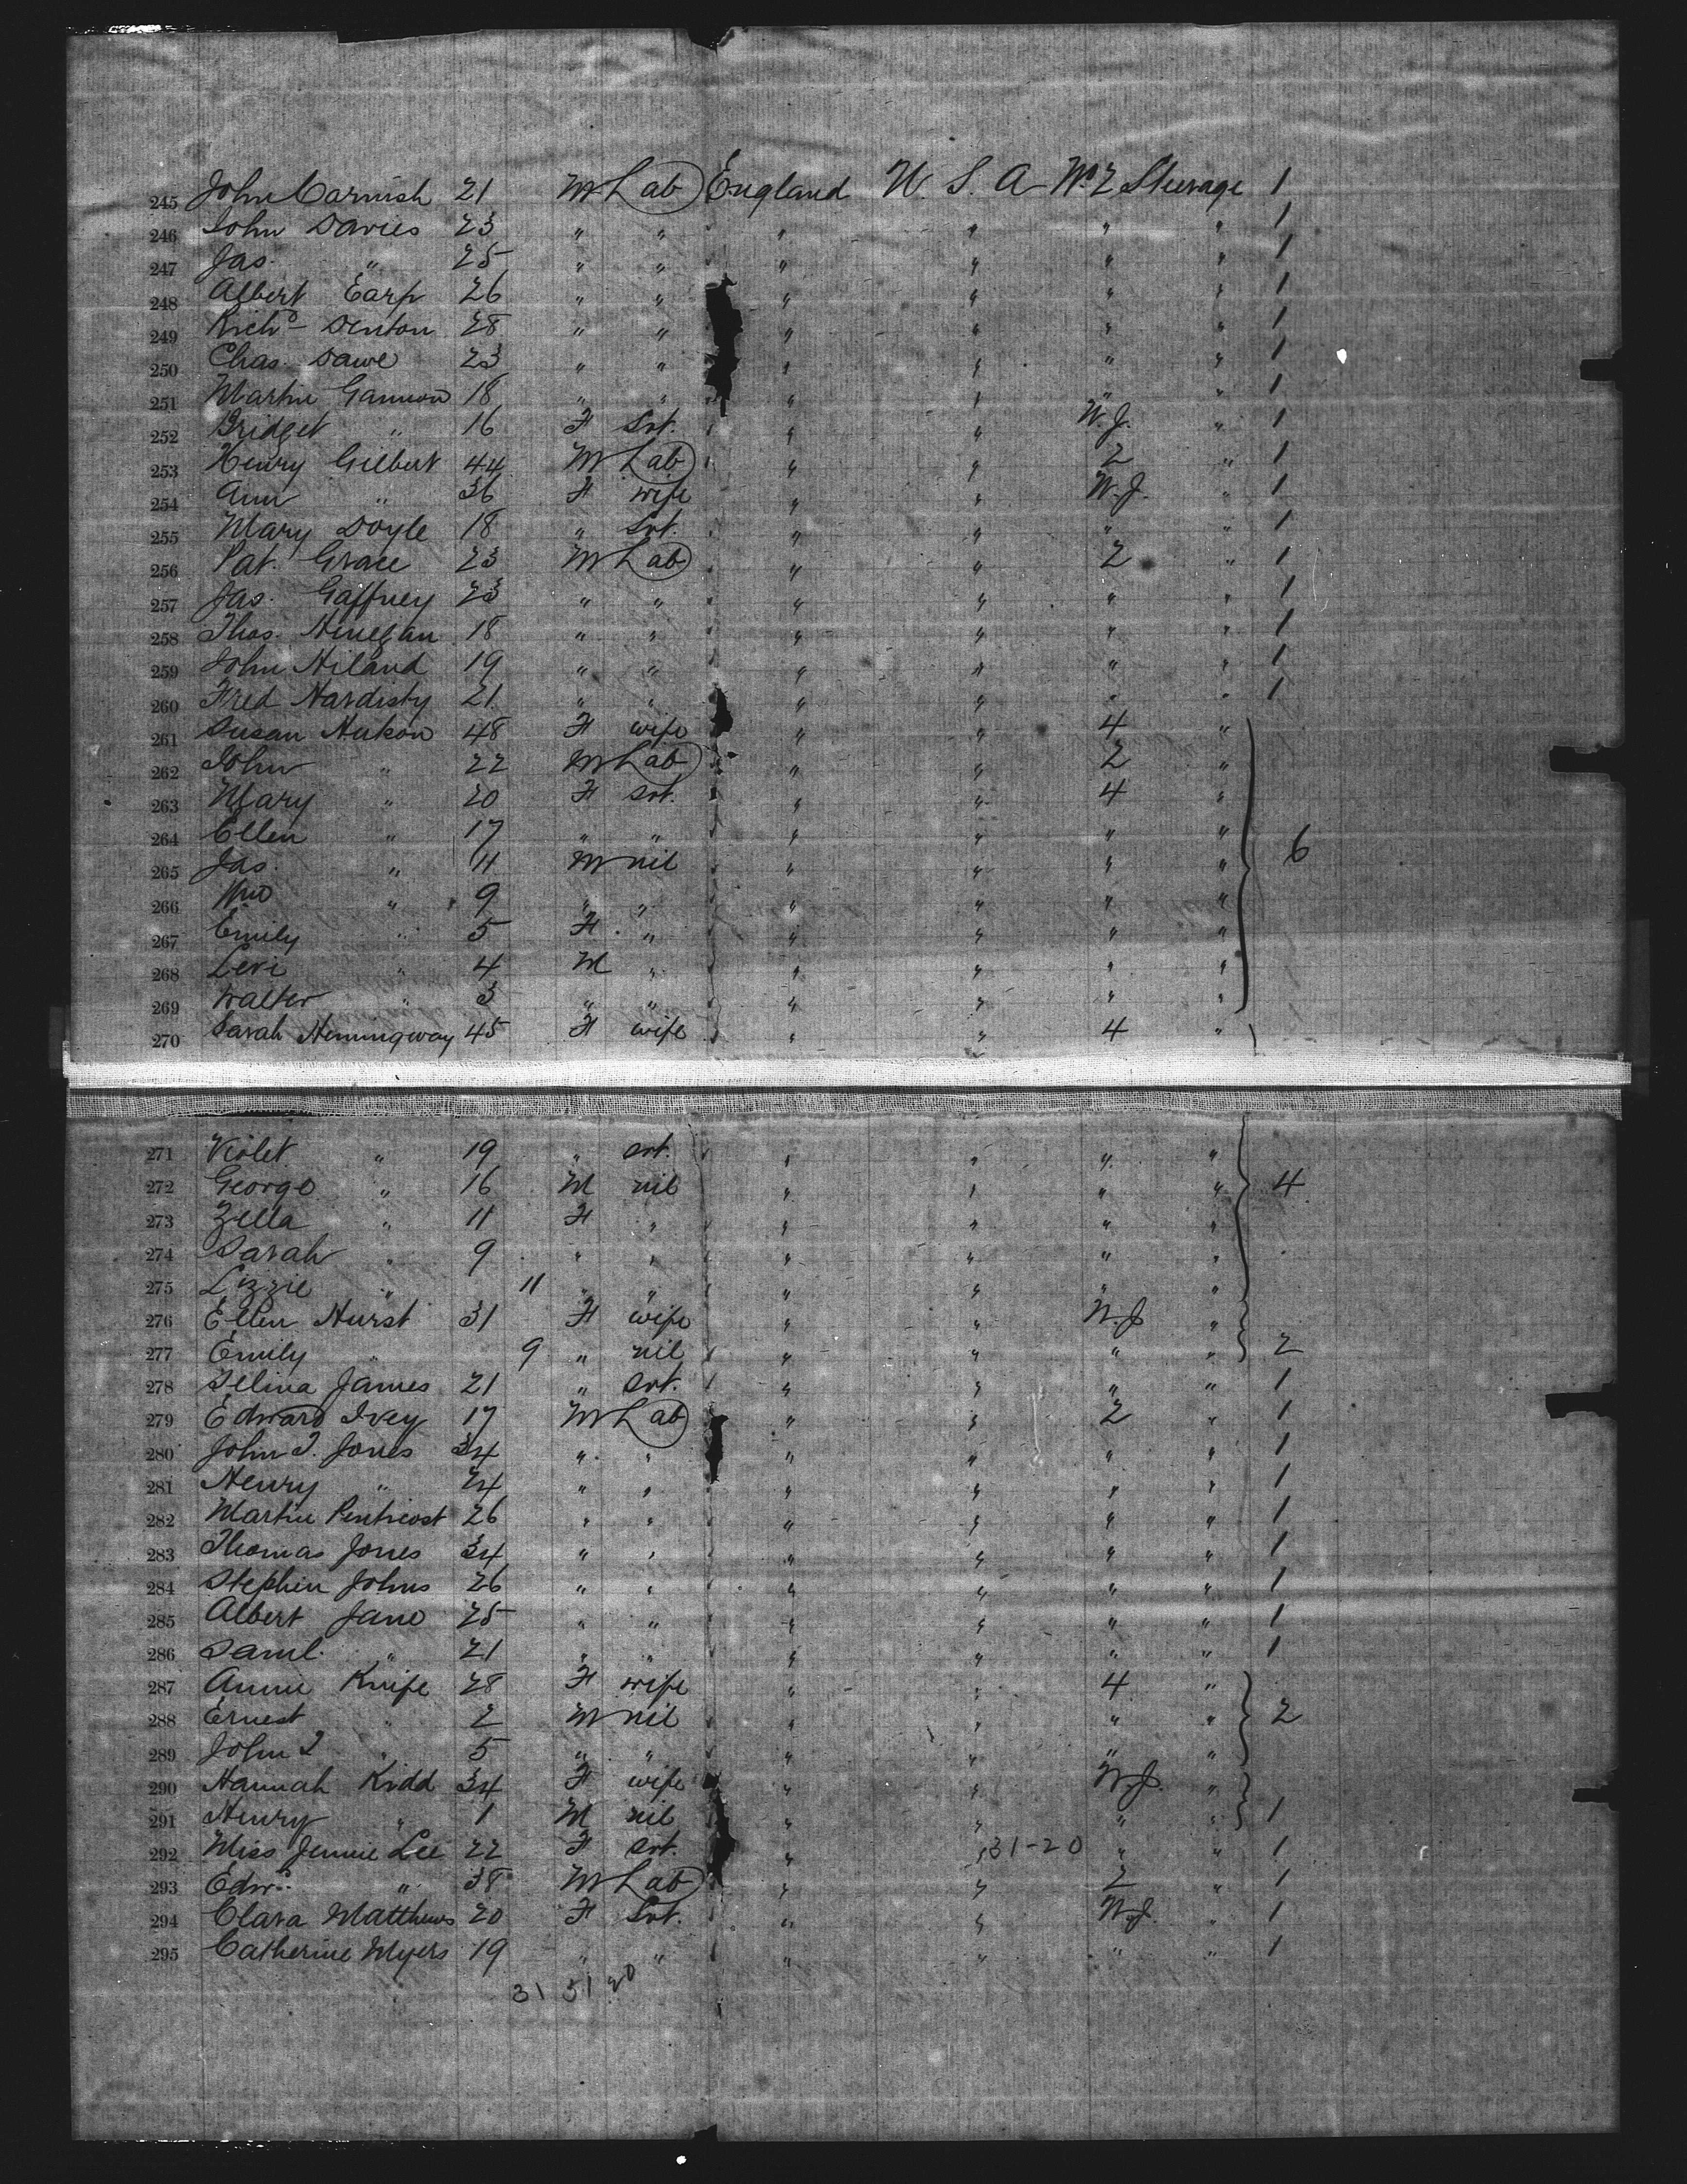 245 John Cornish 21 M Lab England U. S. A No 2 Steerage 1
246 John Davies 23 " " " " " " 1
247 Jas. " 25 " " " " " " 1
248 Albert Earp 26 " " " " " " 1
249 Richd Denton 28 " " " " " " 1
250 Chas. Dawe 23 " " " " " " 1
251 Martin Gannon 18 " " " " " " 1
252 Bridget " 16 F Svt. " " W. J. " 1
253 Henry Gilbert 44 M Lab " " 2 " 1
254 Ann " 36 F wife " " W. J. " 1
255 Mary Doyle 18 " Svt. " " " " 1
256 Pat. Grace 23 M Lab " " 2 " 1
257 Jas. Gaffney 23 " " " " " " 1
258 Thos. Hinegan 18 " " " " " " 1
259 John Hiland 19 " " " " " " 1
260 Fred Hardisty 21 " " " " " " 1
261 Susan 48 F wife " " 4 "
262 John " 22 M Lab " " 2 "
263 Mary " 20 F svt. " " 4 "
264 Ellen " 17 " " " " " " 6
265 Jas. " 11 M nil " " " "
266 Wm " 9 " " " " " "
267 Emily " 5 F " " " " "
268 Levi " 4 M " " " " "
269 Walter " 3 " " " " " "
270 Sarah Hemingway 45 F wife " " 4 "
271 Violet " 19 " svt. " " " "
272 George " 16 M nil " " " " 4
273 Zella " 11 F " " " " "
274 Sarah " 9 " " " " " "
275 Lizzie " 11 " " " " " "
276 Ellen Hurst 31 F wife " " W. J "
277 Emily " 9 " nil " " " " 2
278 Selina James 21 " svt. " " " " 1
279 Edward Ivey 17 M Lab " " 2 " 1
280 John T. Jones 34 " " " " " " 1
281 Henry " 24 " " " " " " 1
282 Martin Penticost 26 " " " " " " 1
283 Thomas Jones 34 " " " " " " 1
284 Stephen Johns 26 " " " " " " 1
285 Albert Jane 25 " " " " " " 1
286 Saml. " 21 " " " " " " 1
287 Annie Knipe 28 F wife " " 4 "
288 Ernest " 2 M nil " " " " 2
289 John T " 5 " " " " " "
290 Hannah Kidd 34 F wife " " W. J. "
291 Henry " 1 M nil " " " " 1
292 Miss Jennie Lee 22 F svt. " " 31-20 " " 1
293 Edwd. " 38 M Lab " " 2 " 1
294 Clara Matthews 20 F Svt. " " W. J. " 1
295 Catherine Myers 19 " " " " " " 1
31 51 20